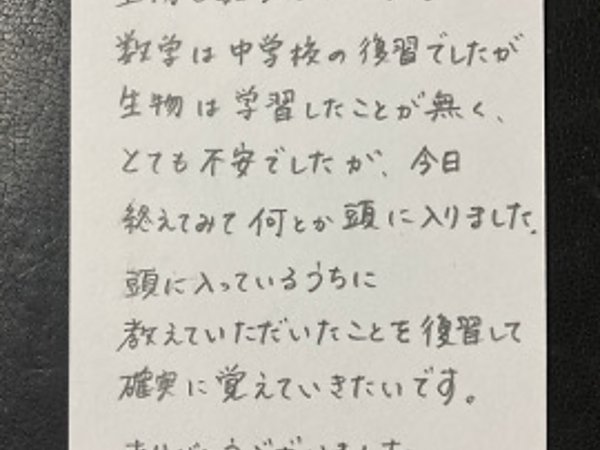 数学は中学校の復習でしたが
生物は学習したことが無く、
とても不安でしたが、今日
終えてみて何とか頭に入りました。
頭に入っているうちに
教えていただいたことを復習して
確実に覚えていきたいです。